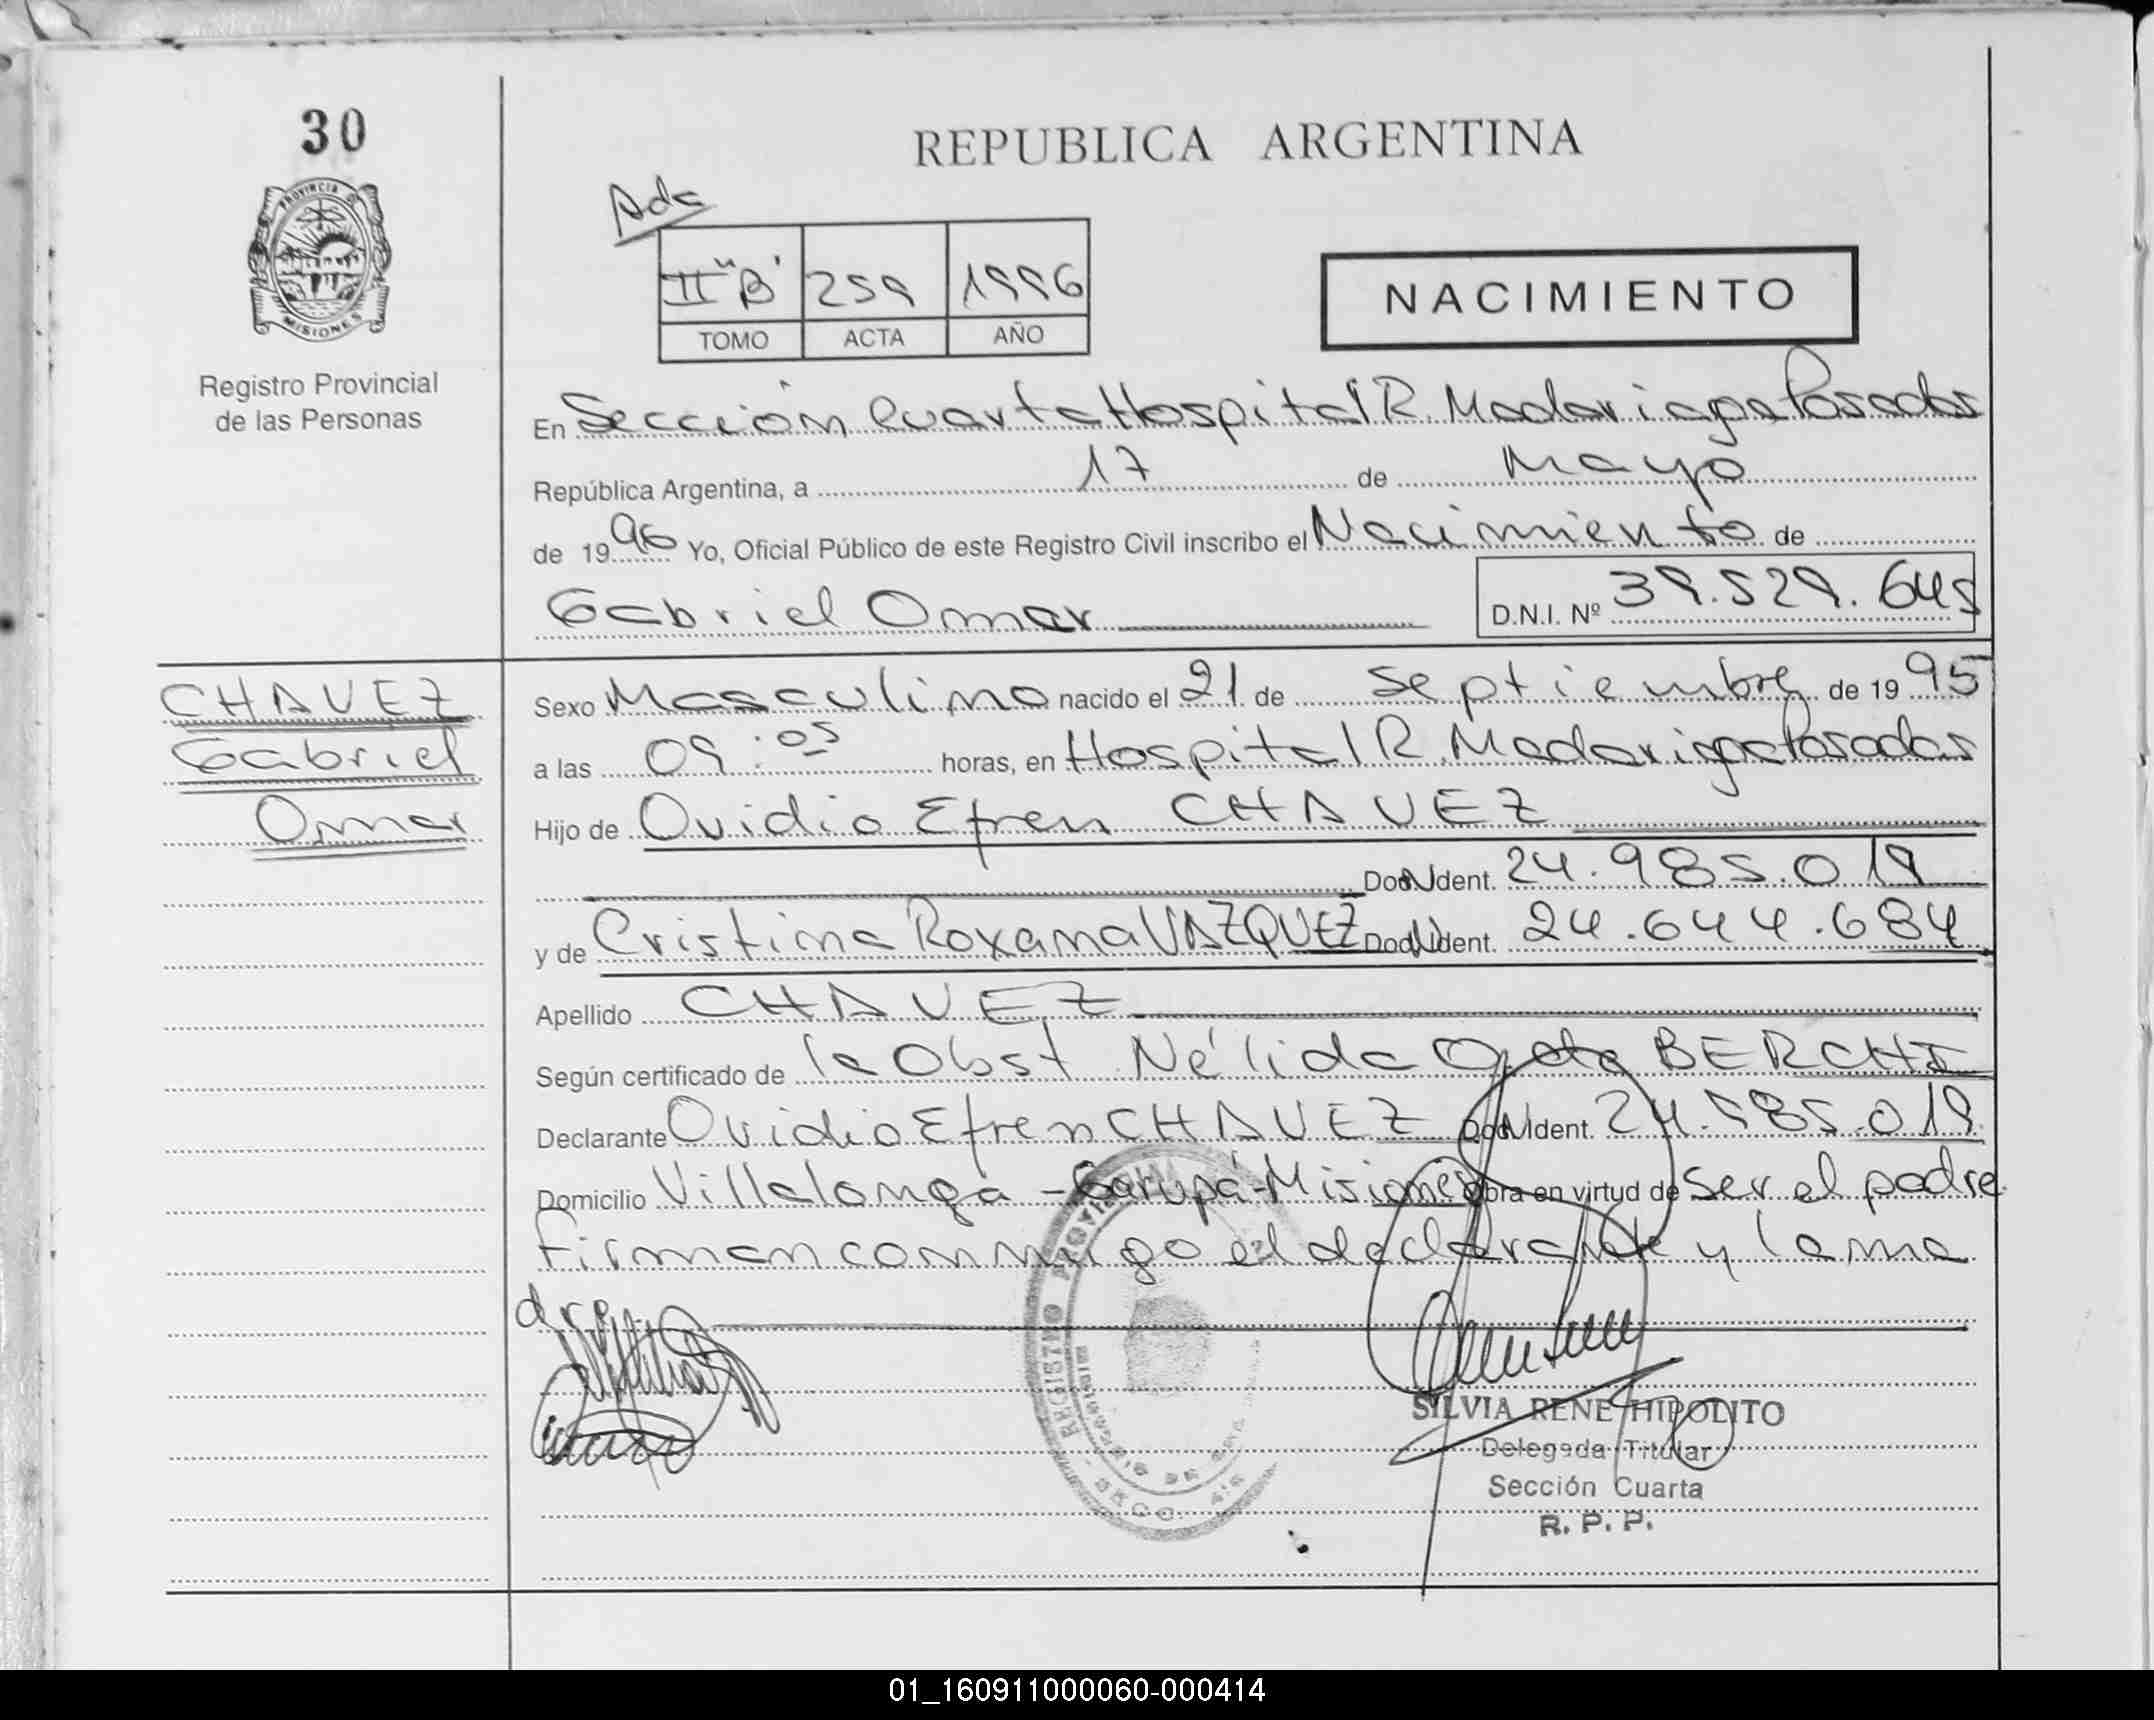 30
REPUBLICA ARGENTINA
PROVINCIA DE
MISIONES
Registro Provincial
de las Personas
Ada
II "B" 259 1996
TOMO ACTA AÑO
NACIMIENTO
En Sección Cuarta Hospital R. Madariaga Posadas
República Argentina, a 17 de Mayo
de 1996 Yo, Oficial Público de este Registro Civil inscribo el Nacimiento de
Gabriel Omar D.N.I. Nº 39.529.645
CHAVEZ
Gabriel
Omar
Sexo Masculino nacido el 21 de Septiembre de 1995
a las 09:05 horas, en Hospital R. Madariaga Posadas
Hijo de Ovidio Efren CHAVEZ
Doc. Ident. 24.985.019
y de Cristina Roxana VAZQUEZ Doc. Ident. 24.644.684
Apellido CHAVEZ
Según certificado de la Obst Nélida O. de BERCHI
Declarante Ovidio Efren CHAVEZ Doc. Ident. 24.985.019
Domicilio Villalonga - Garupá - Misiones Obra en virtud de Ser el padre
Firman conmigo el declarante y la ma
dre
REGISTRO PROVINCIAL
SECC. 4ta
SILVIA RENE HIPOLITO
Delegada Titular
Sección Cuarta
R. P. P.
01_160911000060-000414